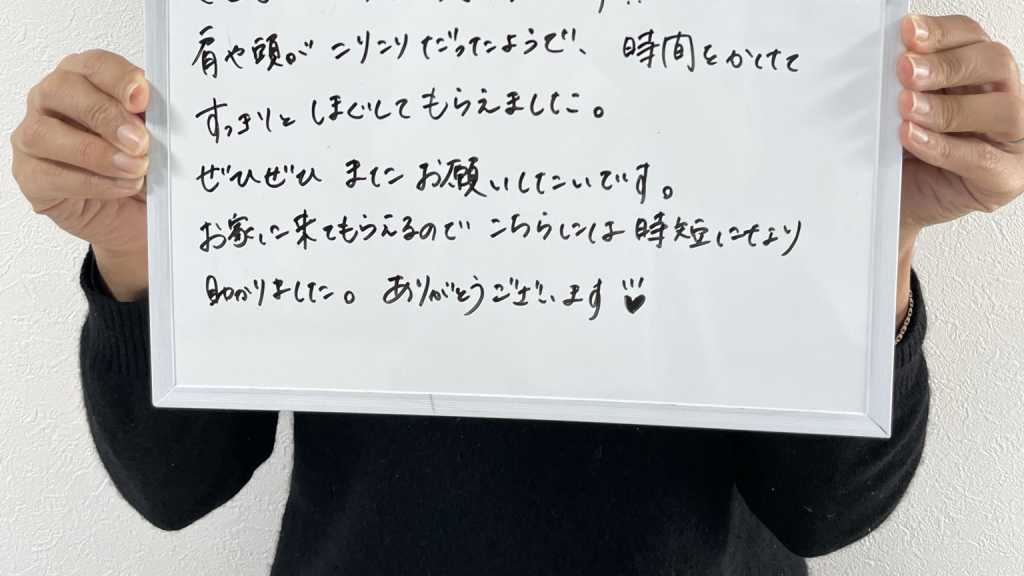 肩や頭が こりこりだったようで、 時間をかけて
すっきりと しまぐしてもらえました。
ぜひぜひ またお願いしたいです。
お家に来てもらえるので こちらには時短にもなり
助かりました。 ありがとうございます